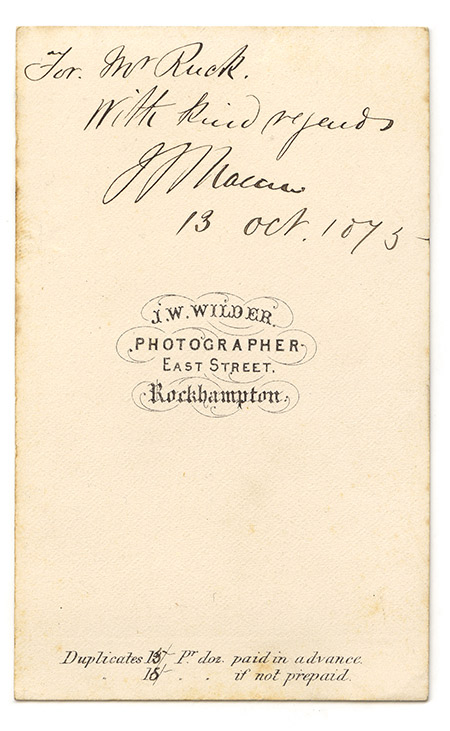 For. Mr Ruck.
With kind regards
13 Oct. 1875
J. W. WILDER.
PHOTOGRAPHER
EAST STREET.
Rockhampton.
Duplicates 15/ Pr doz. paid in advance.
" 18/ " " if not prepaid.